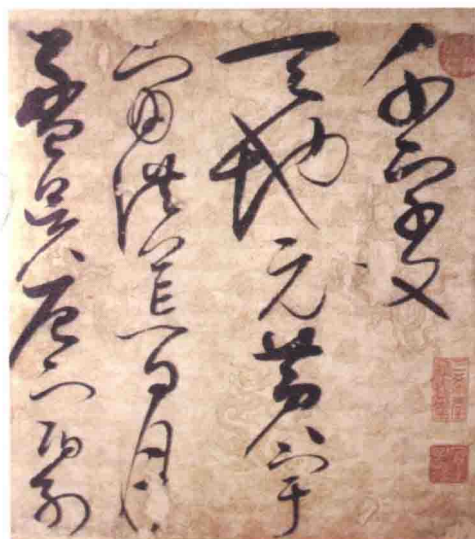 千字文
天地元黄宇
宙洪荒日月
盈昃辰宿列